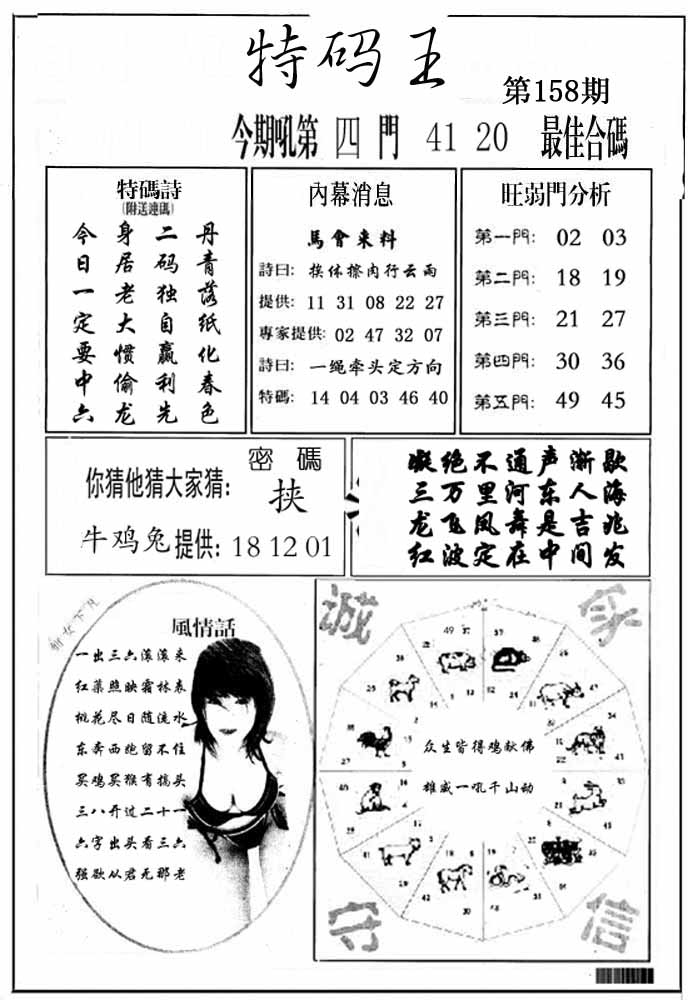 特码王
第158期
今期吼第 四 門 41 20 最佳合碼
特碼詩
(附送連碼)
今日一定要中六
身居老大惯偷龙
二码独自赢利先
丹青落纸化春色
內幕消息
馬會来料
詩曰: 挨休擦肉行云雨
提供: 11 31 08 22 27
專家提供: 02 47 32 07
詩曰: 一绳牵头定方向
特碼: 14 04 03 46 40
旺弱門分析
第一門: 02 03
第二門: 18 19
第三門: 21 27
第四門: 30 36
第五門: 49 45
密 碼
你猜他猜大家猜: 挟
牛鸡兔提供: 18 12 01
凝绝不通声渐歇
三万里河东人海
龙飞凤舞是吉兆
红波定在中间发
風情話
一出三六滚滚来
红叶照映霜林表
桃花尽日随流水
东奔西跑留不住
买鸡买猴有搞头
三八开过二十一
六字出头看三六
强欲从君无那老
诚
家
众生皆得鸡献佛
雄威一吼千山动
守
信